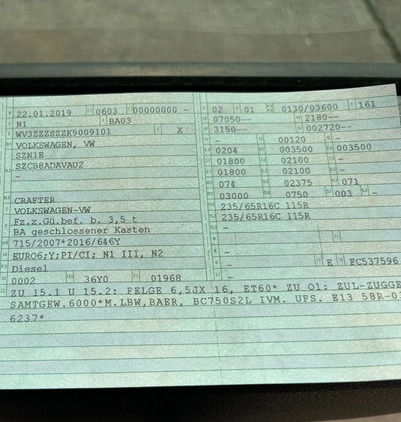 22.01.2019 0603 00000000 -
N1 BA03
WV3ZZZSZZK9009101 X
VOLKSWAGEN, VW
SZN1E
SZCB8ADAVAU2
-
CRAFTER
VOLKSWAGEN-VW
Fz.z.Gü.bef. b. 3,5 t
BA geschlossener Kasten
715/2007*2016/646Y
EURO6;Y;PI/CI; N1 III, N2
Diesel
0002 36Y0 01968
02 01 0130/03600 161
07050-- 2180--
3150-- 002720--
- 00120 -
0204 003500 003500
01800 02100 -
01800 02100 -
074 02375 071
03000 0750 003 -
235/65R16C 115R
235/65R16C 115R
-
-
-
- E FC537596
-
ZU 15.1 U 15.2: FELGE 6,5JX 16, ET60* ZU O1: ZUL-ZUGGE
SAMTGEW.6000*M.LBW,BAER, BC750S2L IVM. UFS. E13 58R-0
6237*